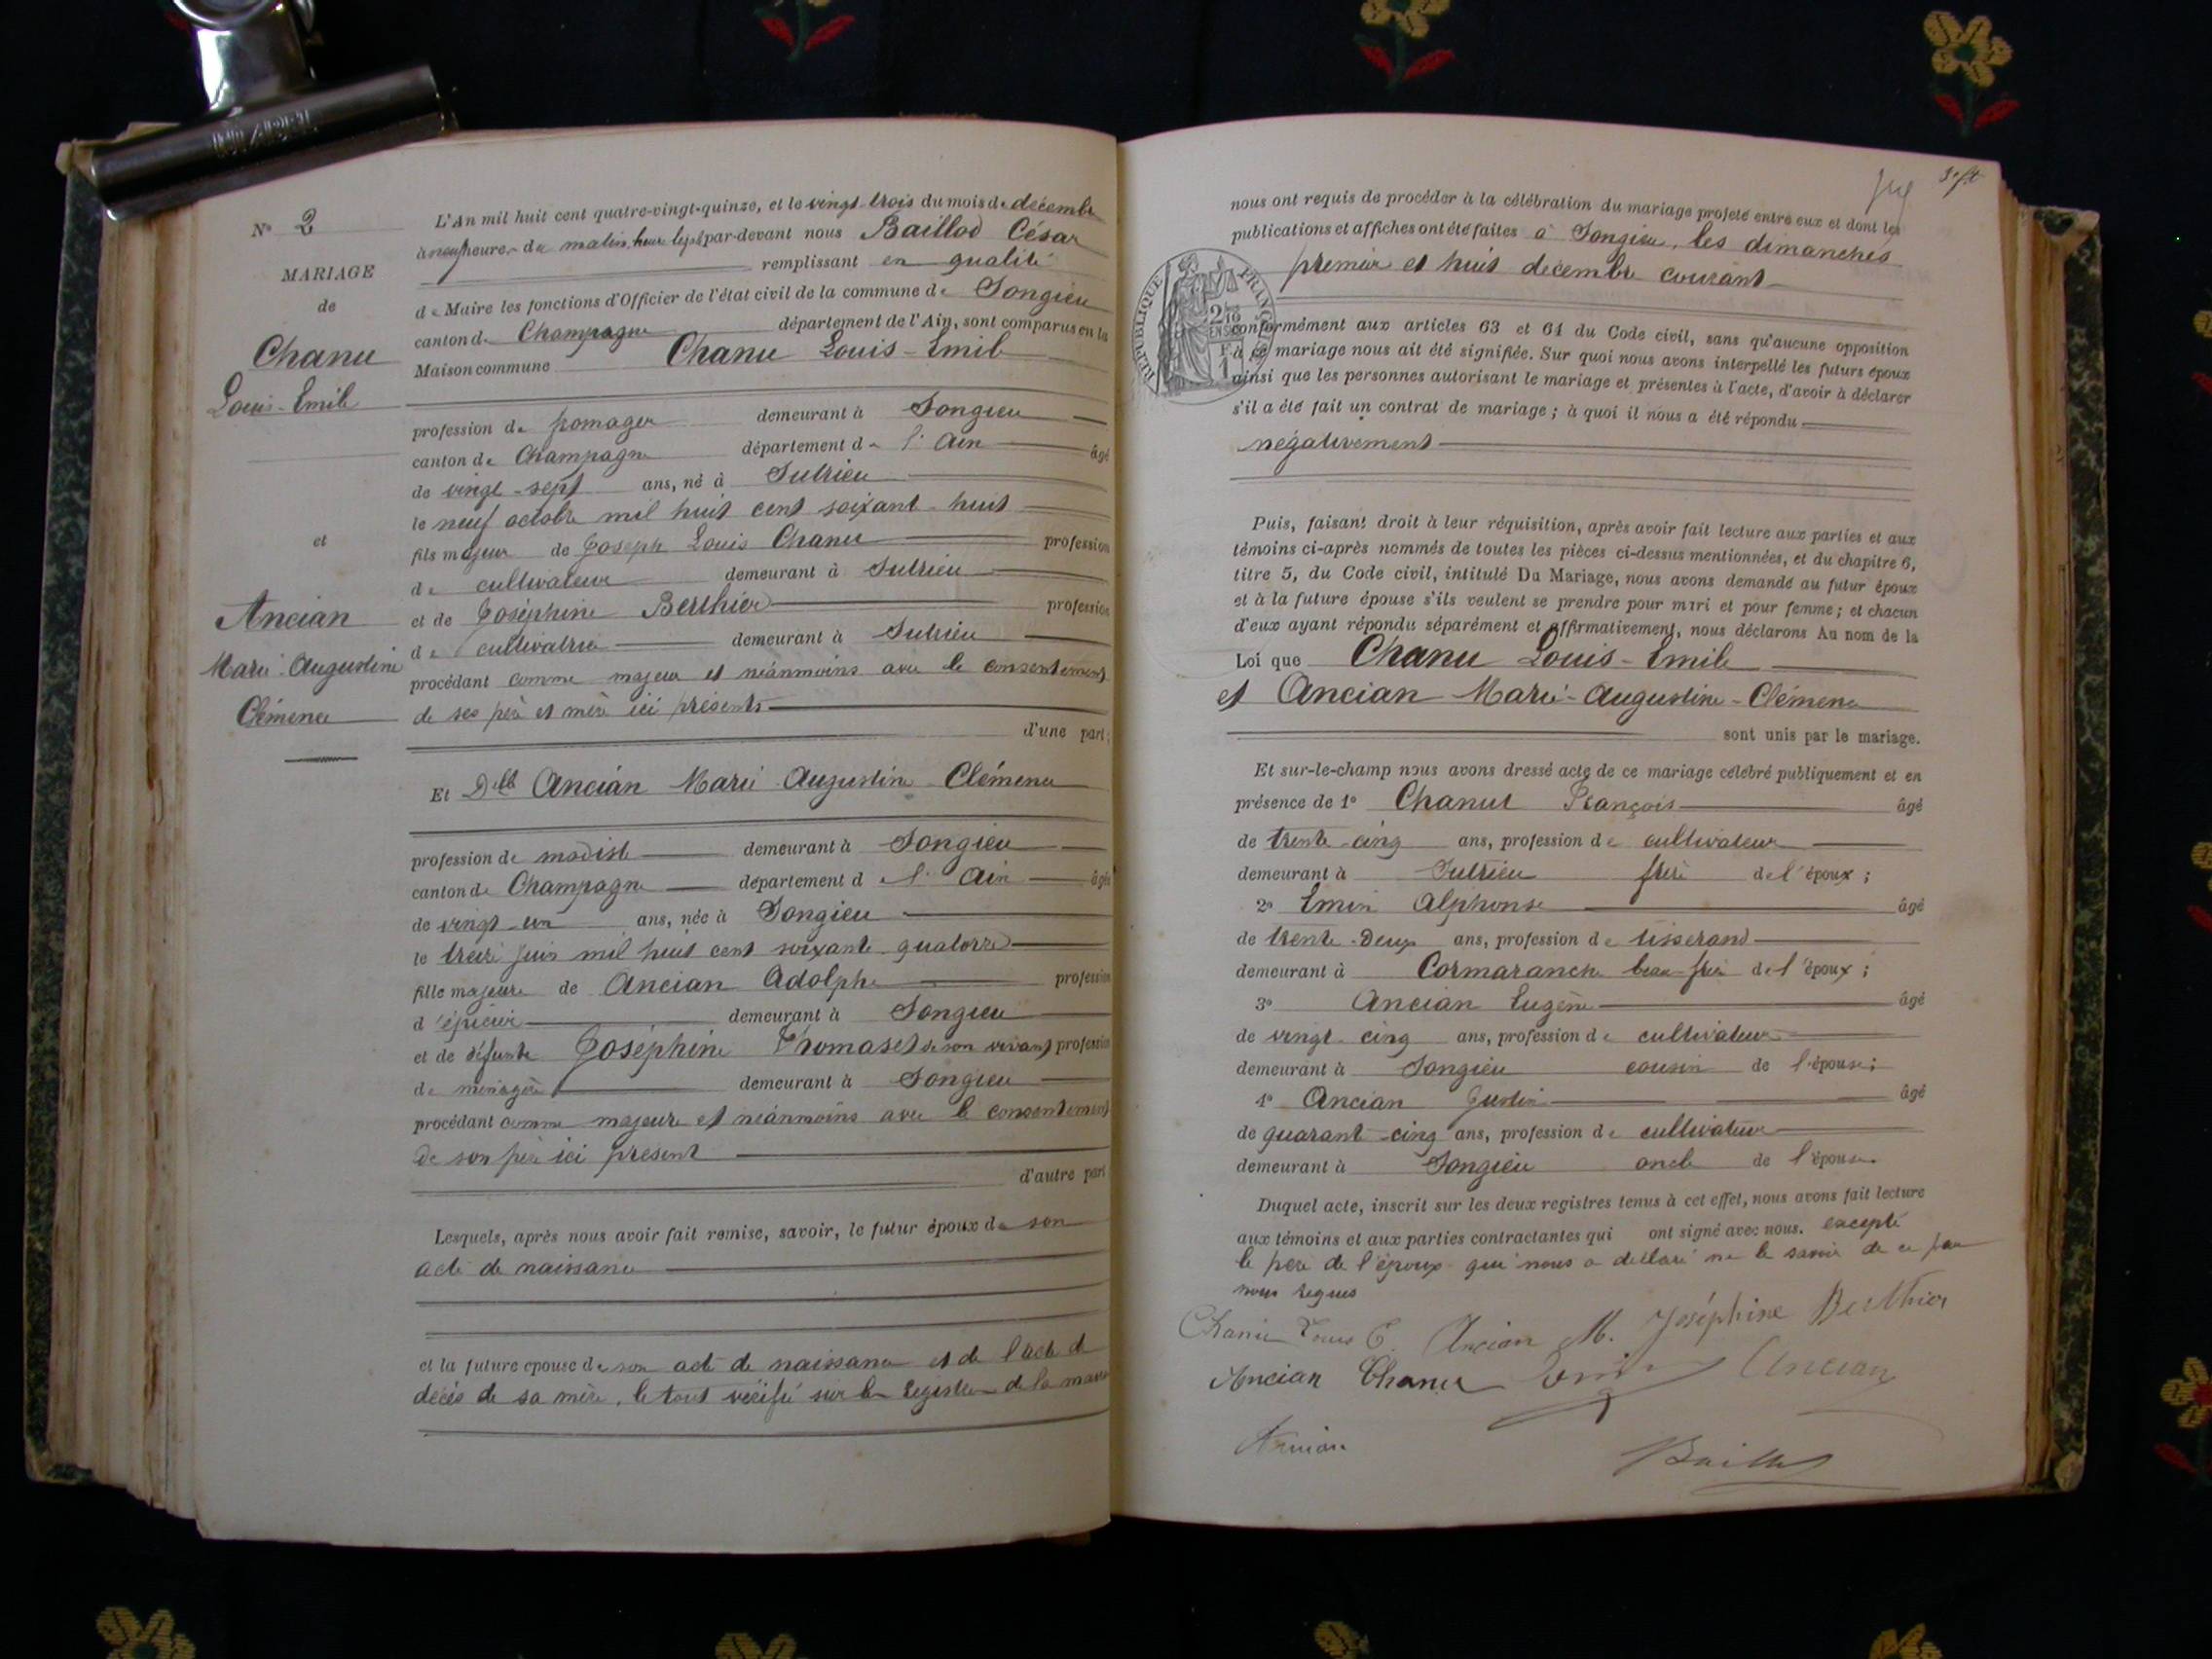 N° 2
MARIAGE
de
Chanu
Louis-Emile
et
Ancian
Marie-Augustine
Clémence
L'An mil huit cent quatre-vingt-quinze, et le vingt-trois du mois de décembre
à neuf heures du matin, heure légale par-devant nous Baillod César
remplissant en qualité
de Maire les fonctions d'Officier de l'état civil de la commune de Songieu
canton de Champagne département de l'Ain, sont comparus en la
Maison commune Chanu Louis-Emile
profession de fromager demeurant à Songieu
canton de Champagne département de l'Ain âgé
de vingt-sept ans, né à Sutrieu
le neuf octobre mil huit cent soixante-huit
fils majeur de Joseph Louis Chanu profession
de cultivateur demeurant à Sutrieu
et de Joséphine Berthier profession
de cultivatrice demeurant à Sutrieu
procédant comme majeur et néanmoins avec le consentement
de ses père et mère ici présents
d'une part;
Et Delle Ancian Marie-Augustine-Clémence
profession de modiste demeurant à Songieu
canton de Champagne département de l'Ain âgée
de vingt-un ans, née à Songieu
le treize juin mil huit cent soixante-quatorze
fille majeure de Ancian Adolphe profession
d'épicier demeurant à Songieu
et de défunte Joséphine Thomasset de son vivant profession
de ménagère demeurant à Songieu
procédant comme majeure et néanmoins avec le consentement
de son père ici présent
d'autre part
Lesquels, après nous avoir fait remise, savoir, le futur époux de son
acte de naissance
et la future épouse de son acte de naissance et de l'acte de
décès de sa mère, le tout vérifié sur les registres de la mairie
nous ont requis de procéder à la célébration du mariage projeté entre eux et dont les
publications et affiches ont été faites à Songieu, les dimanches
premier et huit décembre courant
RÉPUBLIQUE FRANÇ
conformément aux articles 63 et 64 du Code civil, sans qu'aucune opposition
à ce mariage nous ait été signifiée. Sur quoi nous avons interpellé les futurs époux
ainsi que les personnes autorisant le mariage et présentes à l'acte, d'avoir à déclarer
s'il a été fait un contrat de mariage; à quoi il nous a été répondu
négativement
Puis, faisant droit à leur réquisition, après avoir fait lecture aux parties et aux
témoins ci-après nommés de toutes les pièces ci-dessus mentionnées, et du chapitre 6,
titre 5, du Code civil, intitulé Du Mariage, nous avons demandé au futur époux
et à la future épouse s'ils veulent se prendre pour mari et pour femme; et chacun
d'eux ayant répondu séparément et affirmativement, nous déclarons Au nom de la
Loi que Chanu Louis-Emile
et Ancian Marie-Augustine-Clémence
sont unis par le mariage.
Et sur-le-champ nous avons dressé acte de ce mariage célébré publiquement et en
présence de 1° Chanut François âgé
de trente-cinq ans, profession de cultivateur
demeurant à Sutrieu frère de l'époux;
2° Emin Alphonse âgé
de trente-deux ans, profession de tisserand
demeurant à Cormaranche beau-frère de l'époux;
3° Ancian Eugène âgé
de vingt-cinq ans, profession de cultivateur
demeurant à Songieu cousin de l'épouse;
4° Ancian Justin âgé
de quarante-cinq ans, profession de cultivateur
demeurant à Songieu oncle de l'épouse.
Duquel acte, inscrit sur les deux registres tenus à cet effet, nous avons fait lecture
aux témoins et aux parties contractantes qui ont signé avec nous. excepté
le père de l'époux qui nous a déclaré ne le savoir de ce par
nous requis
Chanu Louis E. Ancian M. Joséphine Berthier
Ancian Chanu Emin Ancian
Ancian Baillod